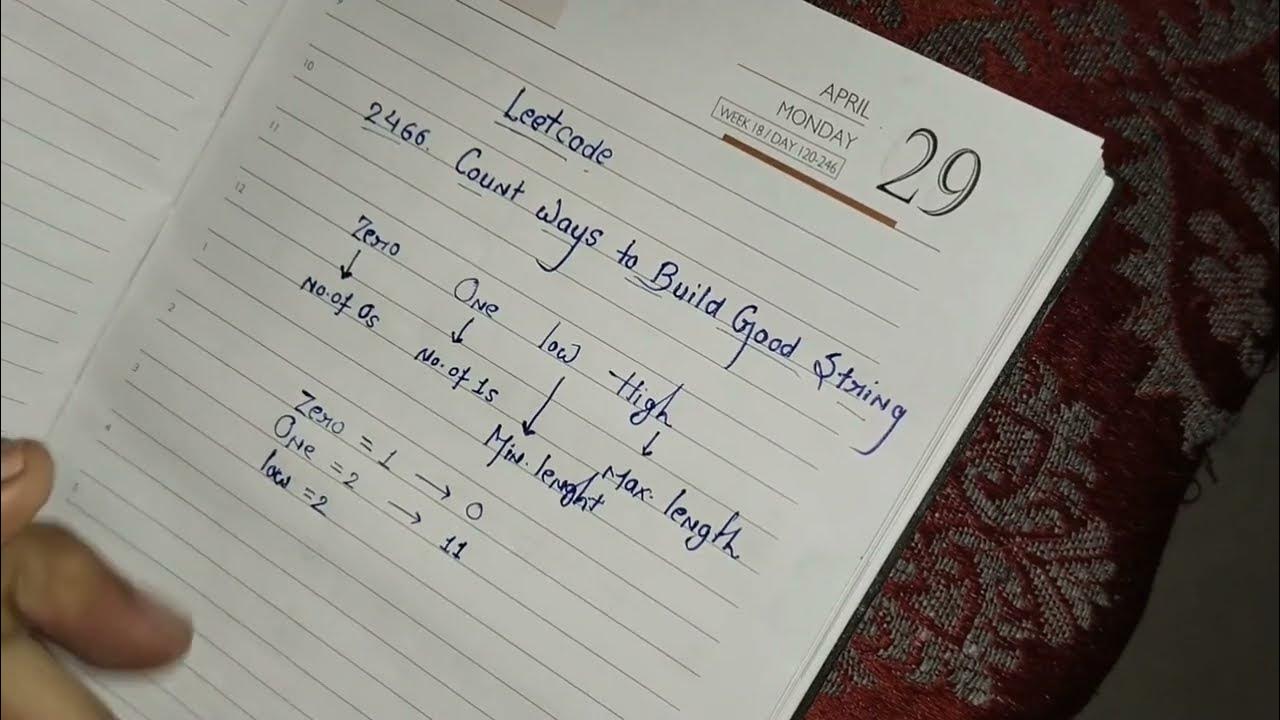 APRIL
MONDAY
WEEK 18 / DAY 120-246
29
9
10
11
12
1
2
3
4
5
Leetcode
2466. Count Ways to Build Good String
Zero One low High
No. of 0s No. of 1s Min. lenght Max. length
Zero = 1 → 0
One = 2 → 11
low = 2